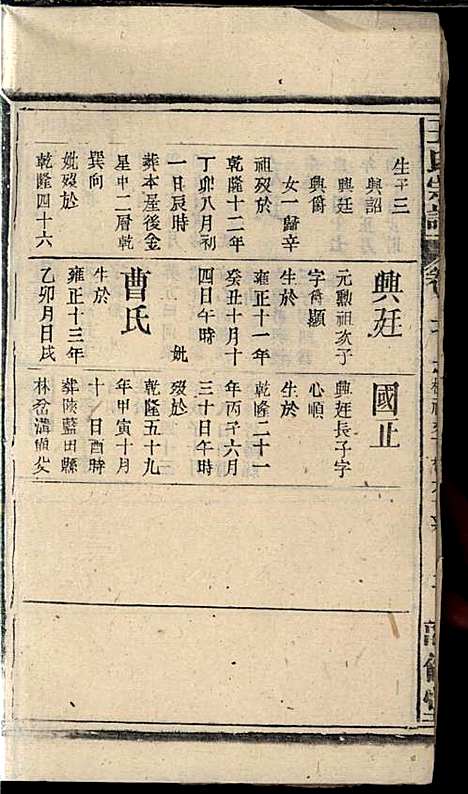 王氏宗譜
卷
生子三
興詔
興廷
興爵
女一歸辛
祖歿於
乾隆十二年
丁卯八月初
一日辰時
葬本屋後金
星中二層乾
巽向
妣歿於
乾隆四十六
興廷
元勳祖次子
字爵顯
生於
雍正十一年
癸丑十月十
四日午時
妣
曹氏
生於
雍正十三年
乙卯月日戌
國正
興廷長子字
心順
生於
乾隆二十一
年丙子六月
三十日午時
歿於
乾隆五十九
年甲寅十月
十日酉時
葬陝藍田縣
林岔溝頭安